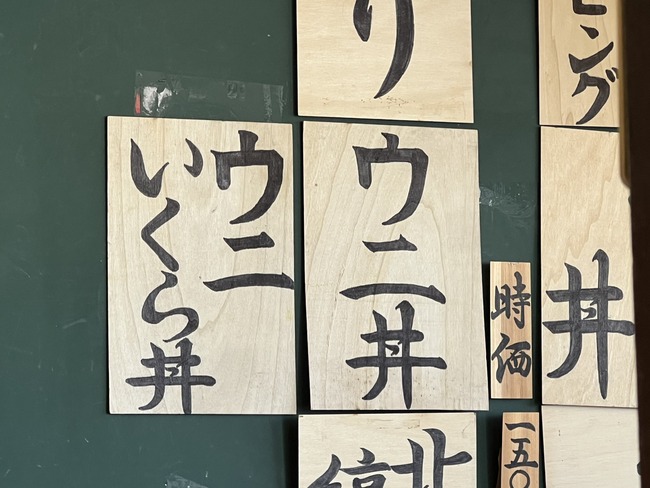 ング
り
丼
時価
ウニ丼
ウニ
いくら丼
一五〇
北